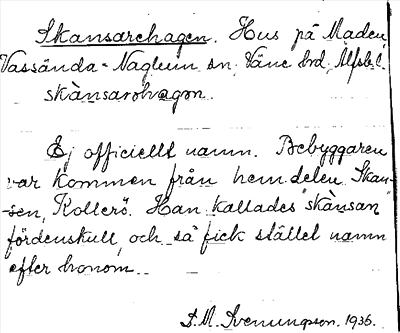 Skansarehagen. Hus på Maden,
Vassända-Naglum sn, Väne hd, Älfsb. l.
skànsaròhagon.
Ej officiellt namn. Bebyggaren
var kommen från hemdelen Skan-
sen, Kollerö. Han kallades "skànsan"
fördenskull, och så fick stället namn
efter honom.
S. M. Svenungson. 1936.